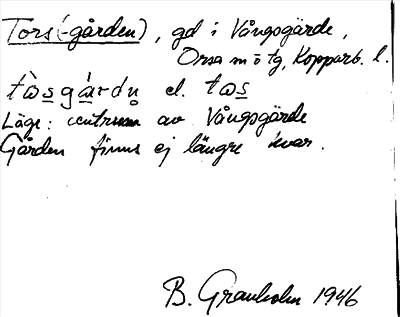 Tors(-gården), gd i Vångsgärde,
Orsa sn o tg, Kopparb. l.
tɷ̀s̲gá̲rdn̥ el. tɷs̲
Läge: centrum av Vångsgärde
Gården finns ej längre kvar.
B. Granholm 1946